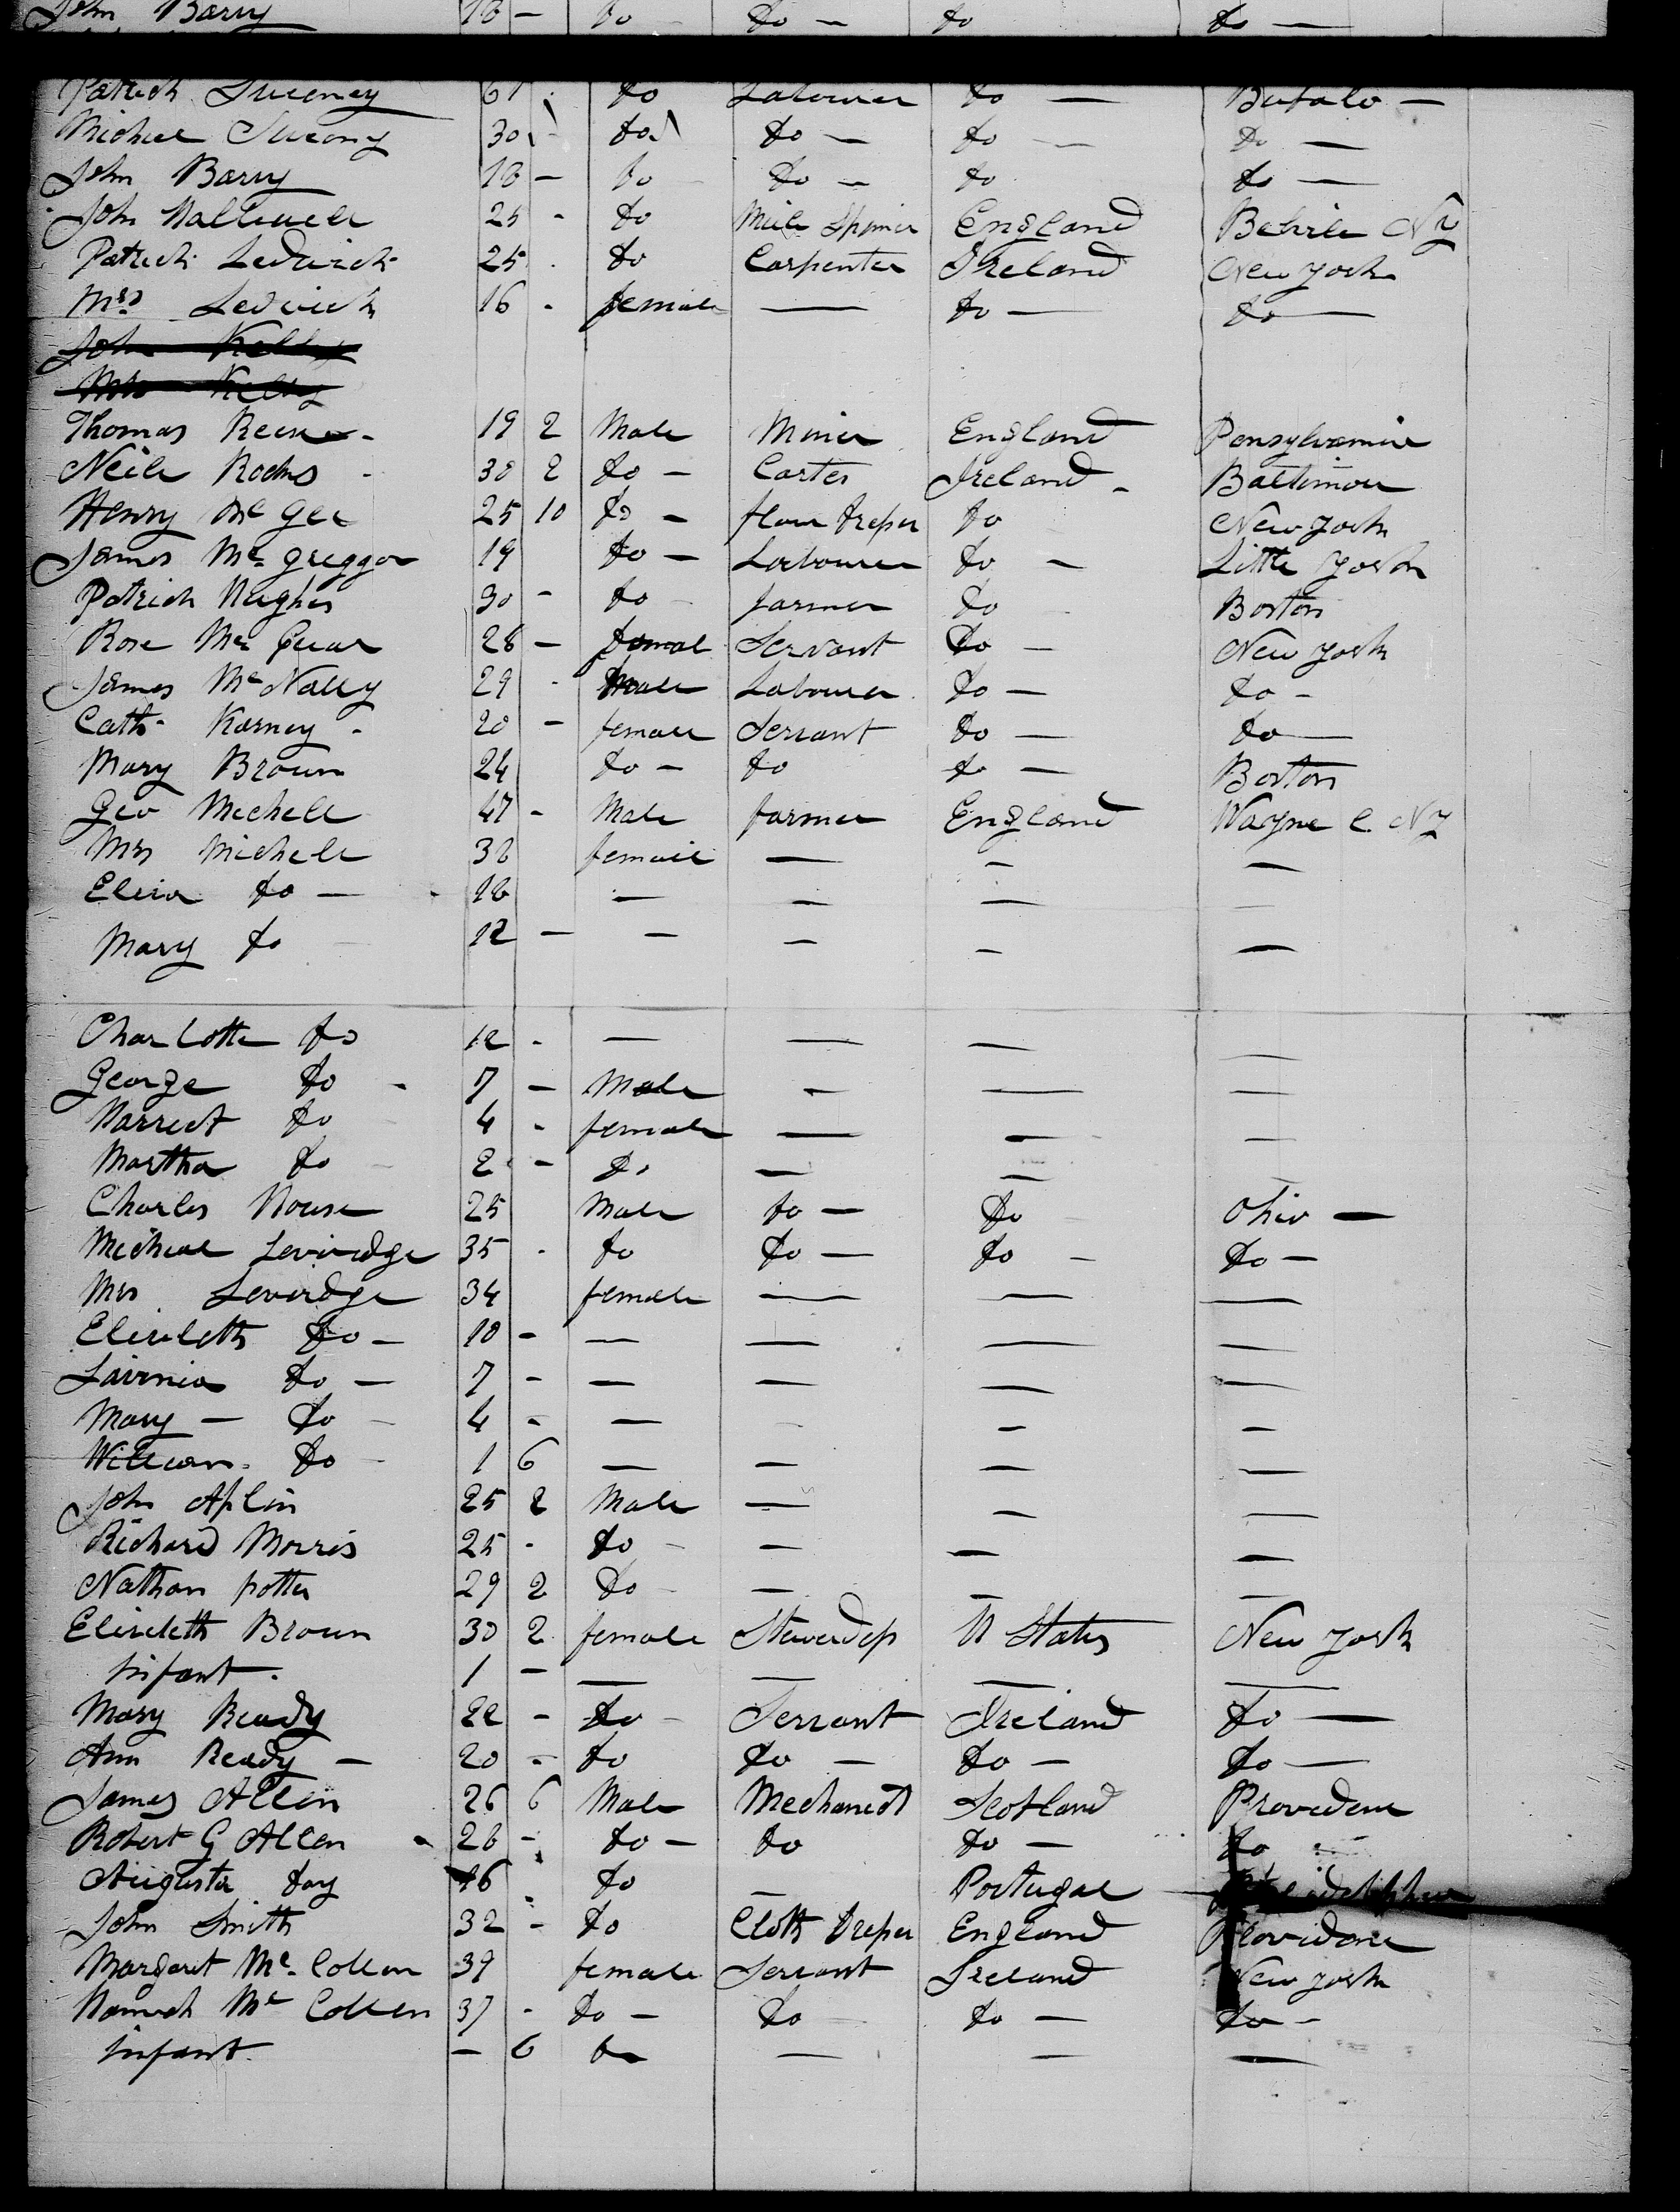 John Barry 18 - do do - do do -
Patrick Sweeney 61 do Labourer do - Bufalo -
Michael Sweeny 30 do do - do - do -
John Barry 18 - do do - do do -
John Halliwell 25 - do Mule Spinner England NY
Patrick Ledwich 25 do Carpenter Ireland New York
Mrs. Ledwich 16 - female - do - do -
John Kelly
Mrs Kelly
Thomas 19 2 Male Miner England Pensylvania
Neile 30 2 do - Carter Ireland - Baltimore
Henry Mc Gee 25 10 do - do New York
James Mc Greggor 19 do - Labourer do - Little York
Patrick Hughes 30 - do farmer do Boston
Rose Mc 28 - femal Servant do - New York
James Mc Nally 29 - Male Labourer do - do -
Cath Karney - 20 - female Servant do - do -
Mary Brown 24 do - do do - Boston
Geo Michell 47 - Male farmer England Wayne C. NY
Mrs Michell 38 female - - -
Eliza do - 16 - - - -
Mary do 12 - - - - -
Charlotte do 12 - - - - -
George do - 7 - Male - - -
Harriet do 4 - female - - -
Martha do 2 - do - - -
Charles House 25 Male do - do Ohio -
Micheal Leviredge 35 - do do - do - do -
Mrs Leveredge 34 female - - -
Elizabeth do - 10 - - - - -
Lavinia do - 7 - - - - -
Mary - do - 4 - - - - -
William do - 1 6 - - - -
John Aplin 25 2 Male - - -
Richard Morris 25 - do - - - -
Nathan potter 29 2 do - - - -
Elizabeth Brown 30 2 female Stewardess U States New York
Infant. 1 - - - - -
Mary Ready 22 - do - Servant Ireland do -
Ann Ready - 20 - do do - do - do -
James Allen 26 6 Male Mechanick Scotland Providence
Robert G Allen 26 - do - do do - do
Augusta 16 do - Portugal Philadelphia
John Smith 32 - do Cloth Dresser England Providence
Margaret Mc. Collen 39 female Servant Ireland New York
Hannah Mc Collen 37 - do - do do - do -
Infant - 6 do - - -